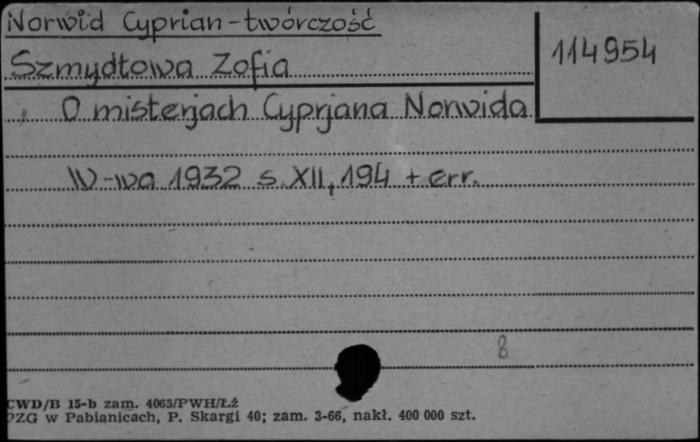 Norwid Cyprian-twórczość
114954
Szmydtowa Zofia
O misterjach Cyprjana Norwida
W-wa 1932 s. XII, 194 + err.
8
CWD/B 15-b zam. 4065/PWH/Łź
PZG w Pabianicach, P. Skargi 40; zam. 3-66, nakł. 400 000 szt.